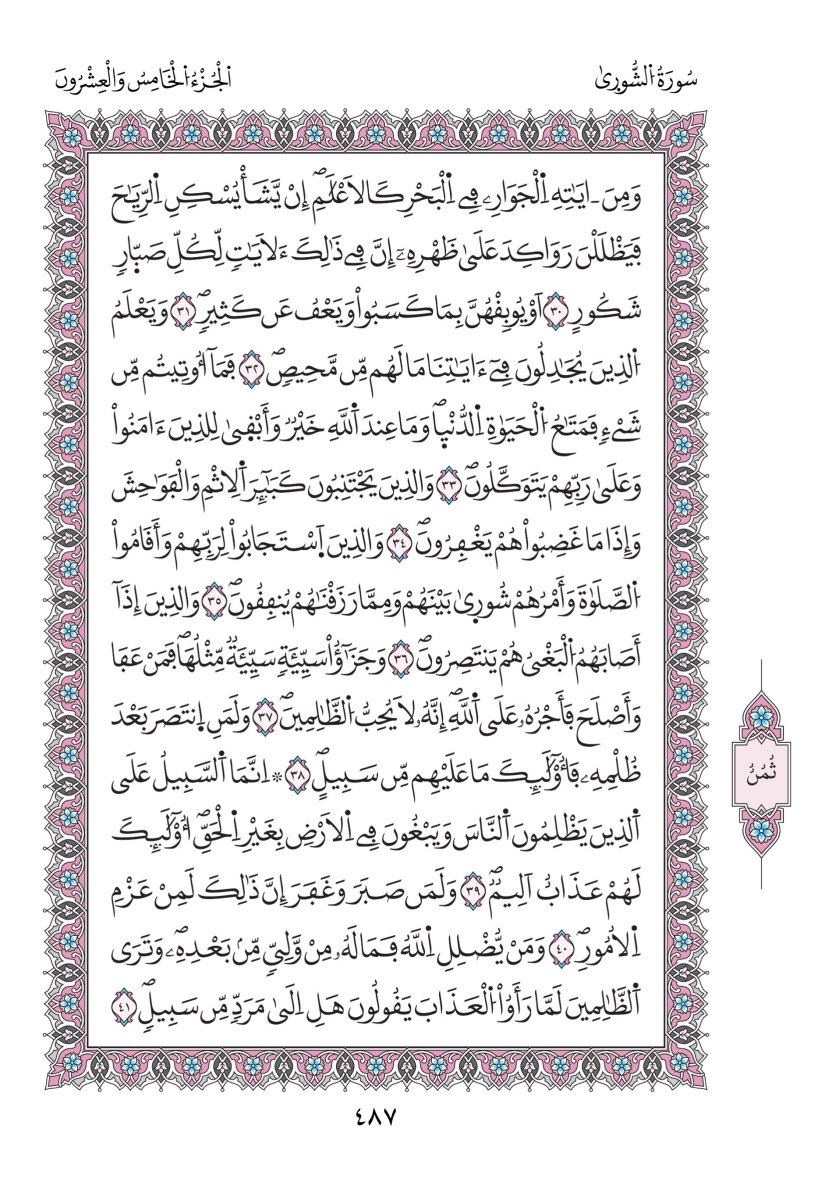 سُورَةُ اُ۬لشُّورۭيٰ
اَ۬لْجُزْءُ اُ۬لْخَامِسُ وَالْعِشْرُونَ
وَمِنَ اٰيَٰتِهِ اِ۬لْجَوَارِۦ فِے اِ۬لْبَحْرِ كَالَاعْلَٰمِۖ إِنْ يَّشَأْ يُسْكِنِ اِ۬لرِّيَٰحَ
فَيَظْلَلْنَ رَوَاكِدَ عَلَىٰ ظَهْرِهِۦٓۖ إِنَّ فِے ذَٰلِكَ ءَلَايَٰتٖ لِّكُلِّ صَبّ۪ارٖ
شَكُورٍ ٣٠ اَوْ يُوبِقْهُنَّ بِمَا كَسَبُواْ وَيَعْفُ عَن كَثِيرٖۖ ٣١ وَيَعْلَمُ
اُ۬لذِينَ يُجَٰدِلُونَ فِےٓ ءَايَٰتِنَا مَا لَهُم مِّن مَّحِيصٖۖ ٣٢ فَمَآ أُوتِيتُم مِّن
شَےْءٖ فَمَتَٰعُ اُ۬لْحَيَوٰةِ اِ۬لدُّنْي۪اۖ وَمَا عِندَ اَ۬للَّهِ خَيْرٞ وَأَبْق۪يٰ لِلذِينَ ءَامَنُواْ
وَعَلَىٰ رَبِّهِمْ يَتَوَكَّلُونَۖ ٣٣ وَالذِينَ يَجْتَنِبُونَ كَبَٰٓئِرَ اَ۬لِاثْمِ وَالْفَوَٰحِشَ
وَإِذَا مَا غَضِبُواْ هُمْ يَغْفِرُونَۖ ٣٤ وَالذِينَ اَ۪سْتَجَابُواْ لِرَبِّهِمْ وَأَقَامُواْ
اُ۬لصَّلَوٰةَ وَأَمْرُهُمْ شُور۪يٰ بَيْنَهُمْ وَمِمَّا رَزَقْنَٰهُمْ يُنفِقُونَۖ ٣٥ وَالذِينَ إِذَآ
أَصَابَهُمُ اُ۬لْبَغْيُ هُمْ يَنتَصِرُونَۖ ٣٦ وَجَزَٰٓؤُاْ سَيِّئَةٖ سَيِّئَةٞ مِّثْلُهَاۖ فَمَنْ عَفَا
وَأَصْلَحَ فَأَجْرُهُۥ عَلَى اَ۬للَّهِۖ إِنَّهُۥ لَا يُحِبُّ اُ۬لظَّٰلِمِينَۖ ٣٧ وَلَمَنِ اِ۪نتَصَرَ بَعْدَ
ظُلْمِهِۦ فَأُوْلَٰٓئِكَ مَا عَلَيْهِم مِّن سَبِيلٍۖ ٣٨ ۞ اِنَّمَا اَ۬لسَّبِيلُ عَلَى
اَ۬لذِينَ يَظْلِمُونَ اَ۬لنَّاسَ وَيَبْغُونَ فِے اِ۬لَارْضِ بِغَيْرِ اِ۬لْحَقِّۖ أُوْلَٰٓئِكَ
لَهُمْ عَذَابٌ اَلِيمٞۖ ٣٩ وَلَمَن صَبَرَ وَغَفَرَ إِنَّ ذَٰلِكَ لَمِنْ عَزْمِ
اِ۬لُامُورِۖ ٤٠ وَمَنْ يُّضْلِلِ اِ۬للَّهُ فَمَا لَهُۥ مِنْ وَّلِيّٖ مِّنۢ بَعْدِهِۦۖ وَتَرَى
اَ۬لظَّٰلِمِينَ لَمَّا رَأَوُاْ اُ۬لْعَذَابَ يَقُولُونَ هَلِ اِلَىٰ مَرَدّٖ مِّن سَبِيلٖۖ ٤١
ثُمُنُ
٤٨٧